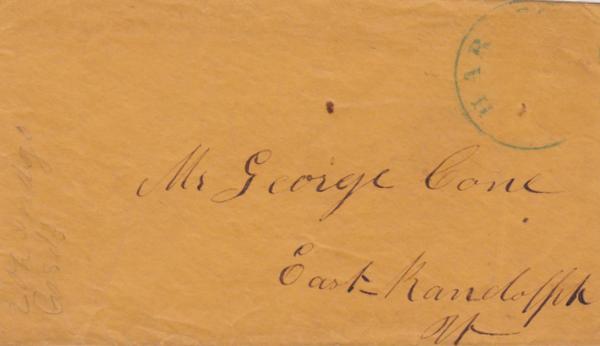 HAR
Mr George Cone
East Randolph
Vt